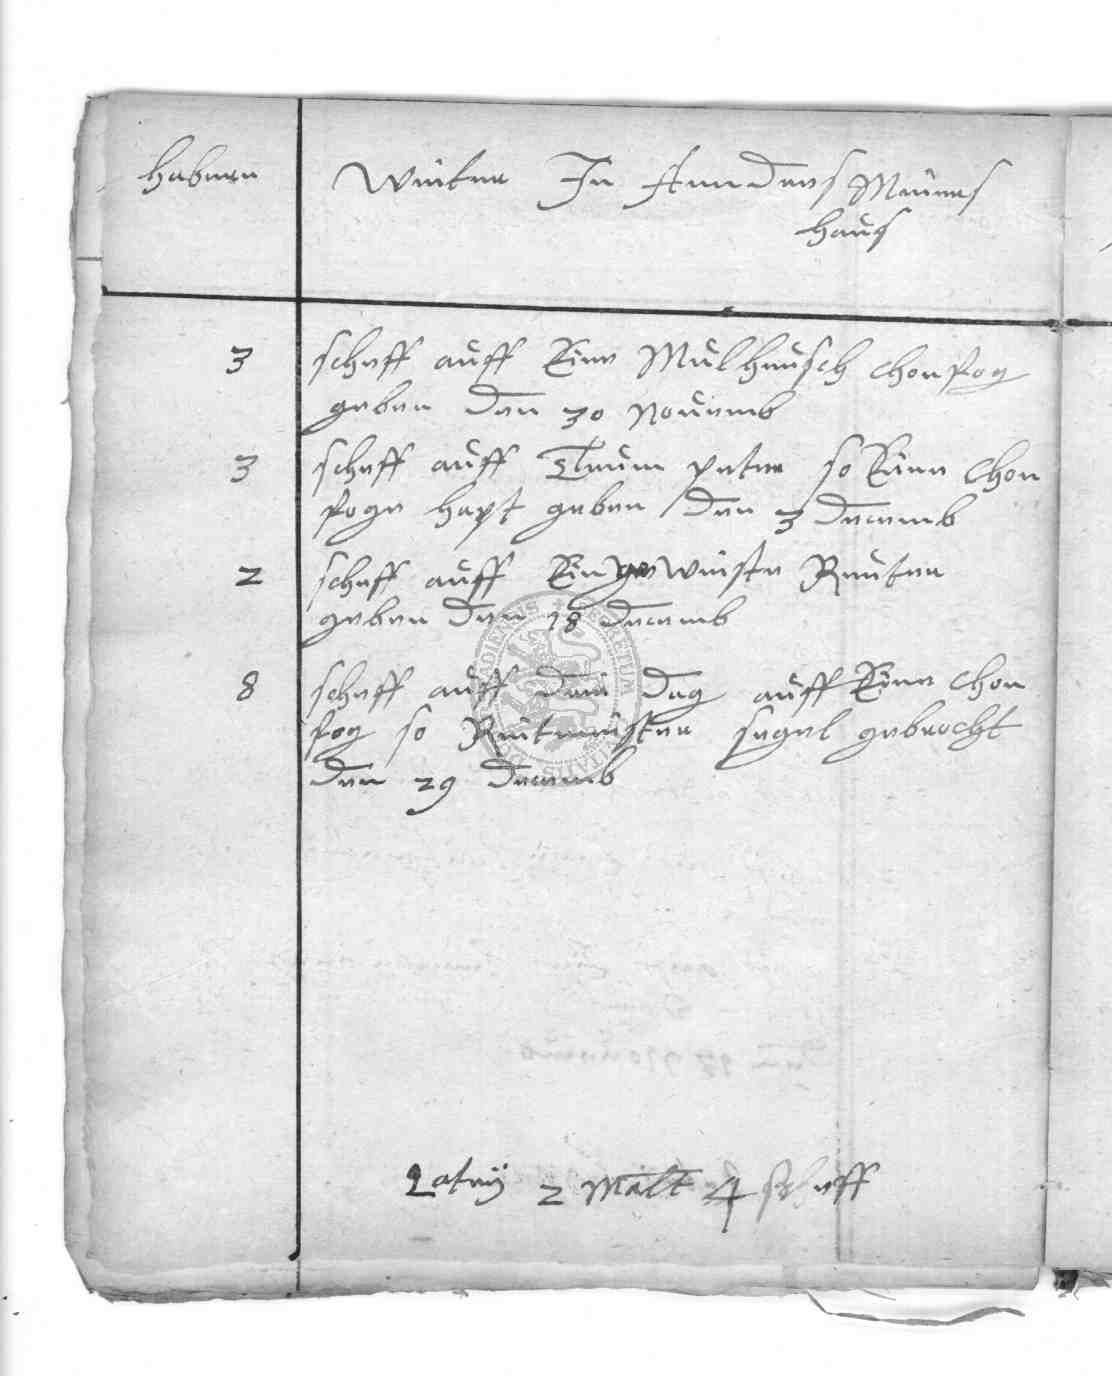 Habern
Winter In Anndres Meiners
Haus
3 scheff auff Eine Mulheusch chonfog
geben den 30 Nouemb
3 scheff auff peter so Eine Chon
foge hapt geben den 3 decemb
2 scheff auff Reuter
geben den 18 decemb
8 scheff auff dem dag auff Eine Chon
fog so Ritmeister segel gebrocht
den 29 decemb
Laterij 2 Malt 4 scheff